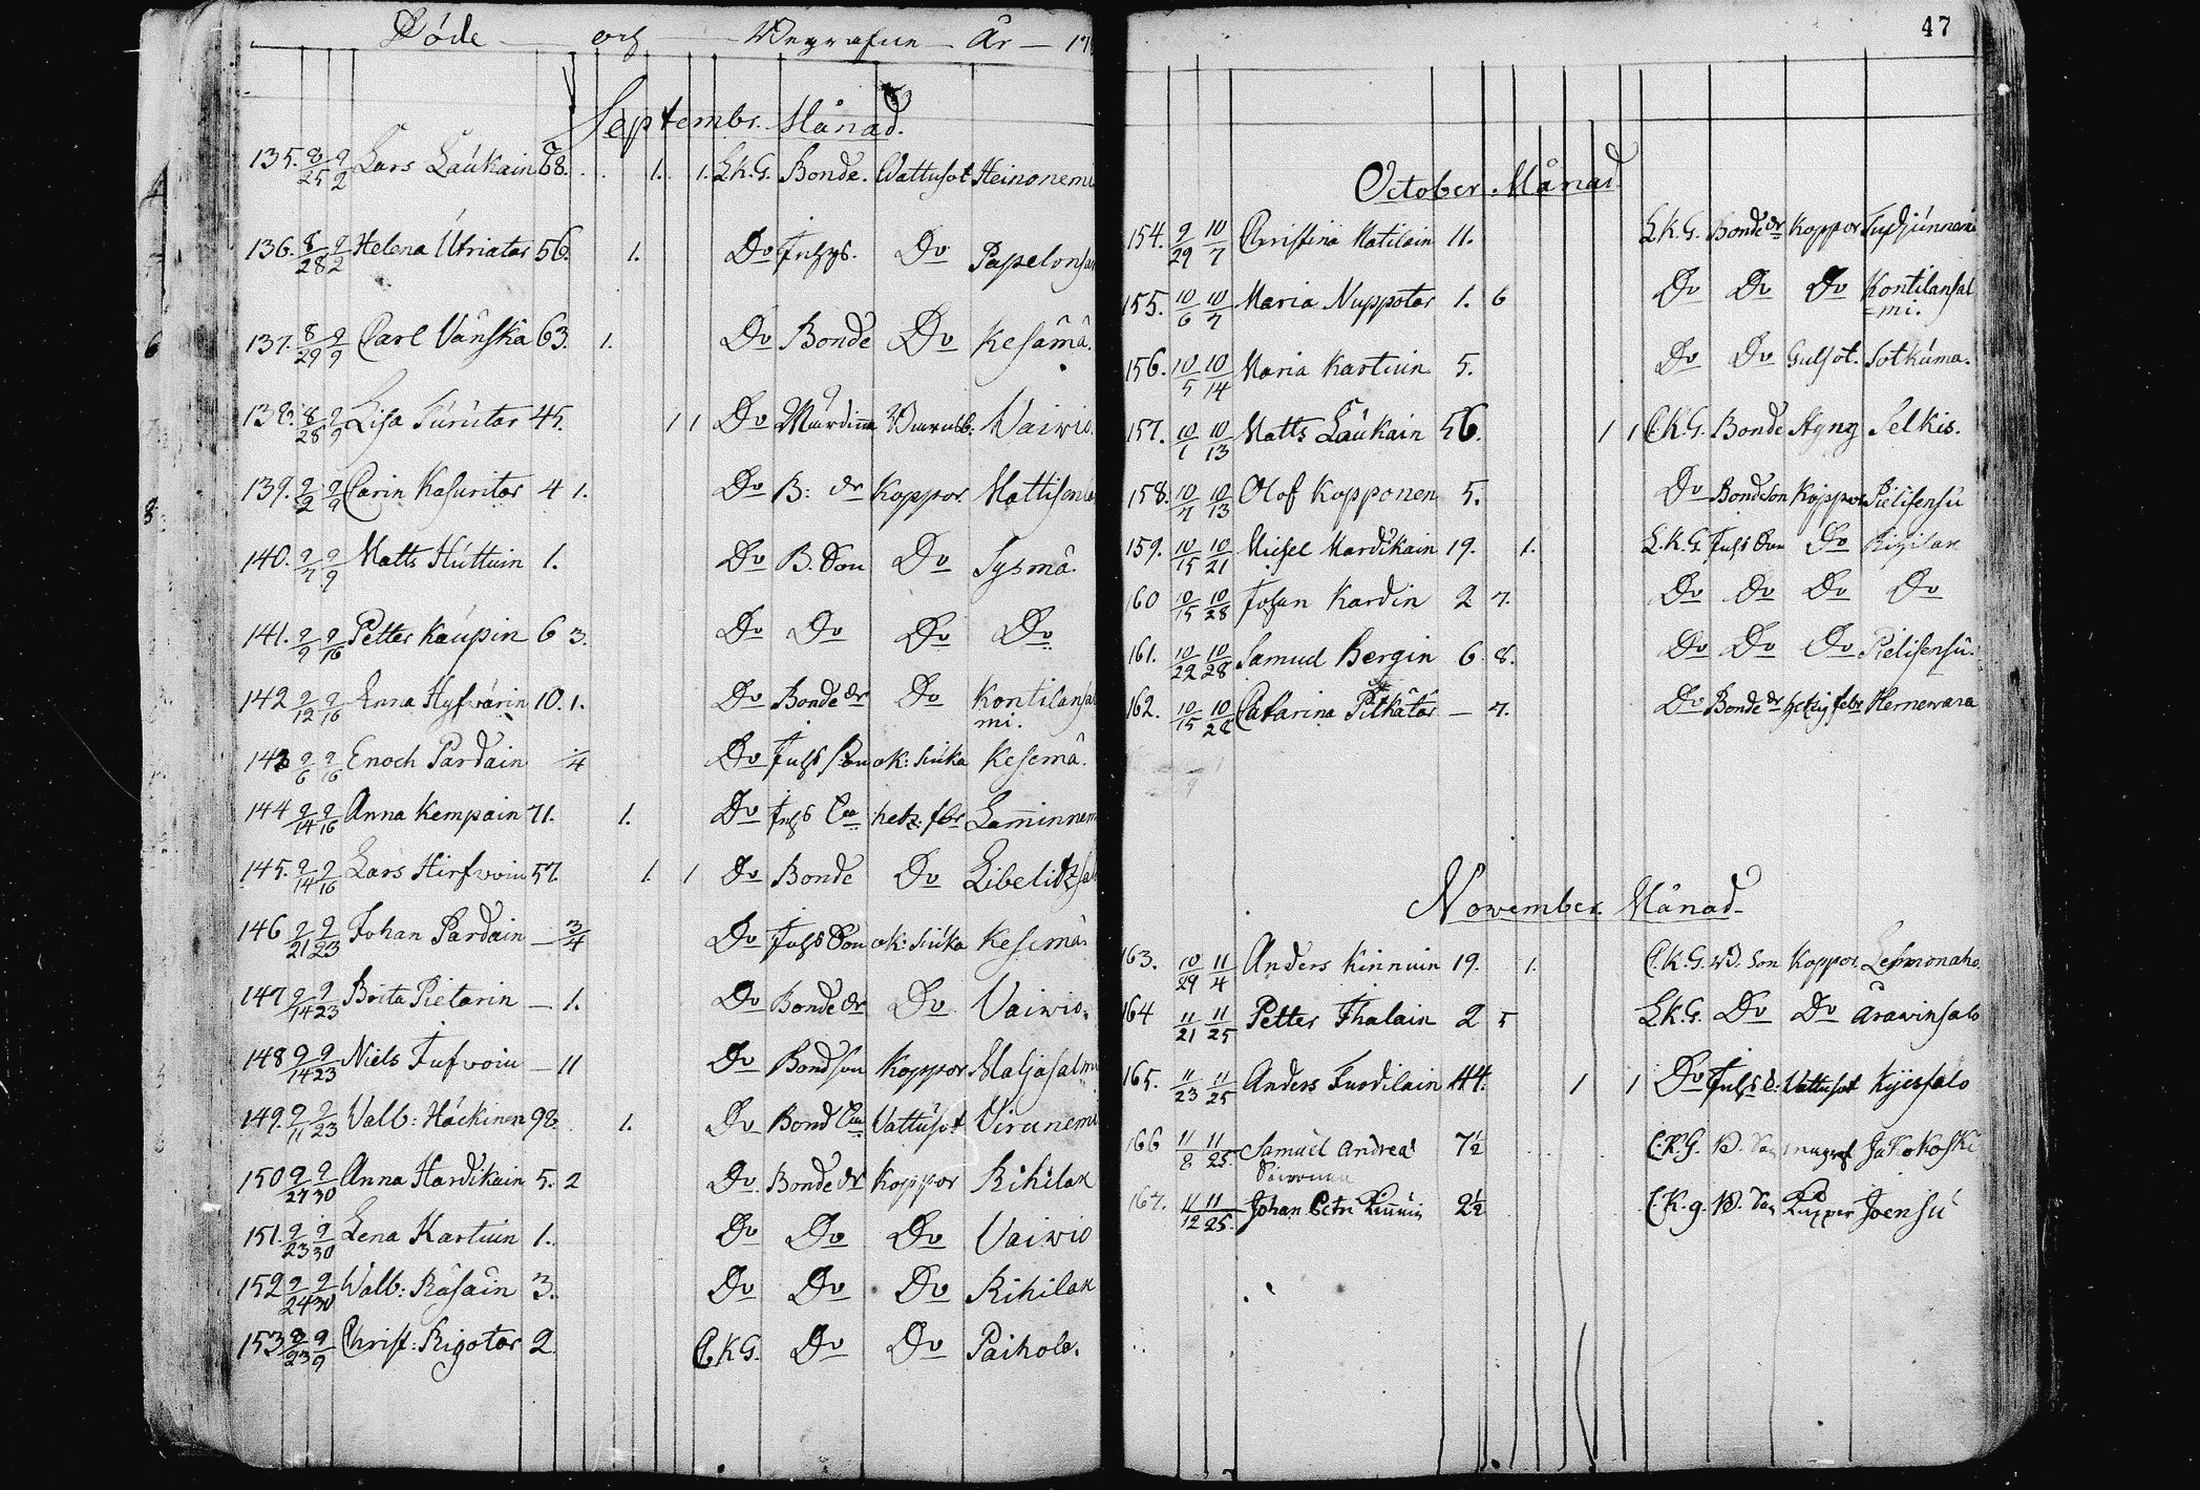 Döde och Begrafne År 17
Septembr. Månad.
135. 8/25 9/2 Lars Laukain 68. 1. 1. L.K.G. Bonde. Wattusot Heinonemi
136. 8/28 9/2 Helena Utriatar 56. 1. Do Do Papelonsa
137. 8/29 9/9 Carl Vänskä 63. 1. Do Bonde Do Kesämä.
138. 8/28 9/9 Lisa 45. 1 1 Do Vaivio.
139. 9/2 9/9 Carin Kasuritar 4 1. Do B: dr Koppor.
140. 9/7 9/9 Matts Huttuin 1. Do B. Son Do Sysmä.
141. 9/9 9/16 Petter Kaupin 6 3. Do Do Do Do
142 9/12 9/16 Anna Hyfvärin 10. 1. Do Bonde dr Do Kontilansal
mi.
143 9/6 9/16 Enoch Pardain 4 Do Juhs Son ok: Siuka Kesemä.
144 9/14 9/16 Anna Kempain 71. 1. Do hetz. fbr Laminnem
145. 9/14 9/16 Lars Hirfvoin 57. 1. 1 Do Bonde Do Libelitzsal
146 9/21 9/23 Johan Pardain — 3/4 Do Juhs Son ok: Siuka Kesemä
147 9/14 9/23 Brita Pietarin — 1. Do Bonde dr Do Vaivio.
148 9/14 9/23 Niels Jufvoin — 11 Do Bondson Koppor Maljasalmi
149. 9/11 9/23 Valb: Häckinen 98. 1. Do Bond Vattusot Virunemi
150 9/27 9/30 Anna Hardikain 5. 2 Do Bonde dr Koppor Rihilax
151. 9/23 9/30 Lena Kartuin 1. Do Do Do Vaivio
152 9/24 9/30 Walb: Räsäin 3. Do Do Do Rihilax
153 8/23 9/9 Christ: Rigotar 2 C.K.G. Do Do Paihola.
47
October Månad.
154. 9/29 10/7 Christina Matilain 11. L.K.G. Bonde dr Koppor
155. 10/6 10/7 Maria Nuppotar 1. 6 Do Do Do Kontilansal
=mi.
156. 10/5 10/14 Maria Kartuin 5. Do Do Gulsot. Sotkuma.
157. 10/1 10/13 Matts Laukain 56. 1 1 C.K.G. Bonde Hgng Selkis.
158. 10/7 10/13 Olof Kopponen 5. Do Bondeson Koppor Pielisensu
159. 10/15 10/21 Michel Hardikain 19. 1. L.K.G. Juhs Son Do Rigilax
160 10/15 10/28 Johan Kardin 2 7. Do Do Do Do
161. 10/22 10/28 Samuel Bergin 6 8. Do Do Do Pielisensu.
162. 10/15 10/28 Catarina Pitkätar — 7. Do Bonde dr hetzig feber Hernevara
November Månad
163. 10/29 11/4 Anders Kinnuin 19. 1. C.K.G. B. Son Koppor.
164 11/21 11/25 Petter Ihalain 2 5 L.K.G. Do Do Aravinsalo
165. 11/23 11/25 Anders Turdilain 44. 1 1 Do Vattusot Kyiessalo
166 11/8 11/25. Samuel Andreas 7½ C.K.G. B. Son Jakokoski
167. 11/12 11/25. Johan Petri Kinnuin 2½ C.K.g. B. Son Kupper Joensu